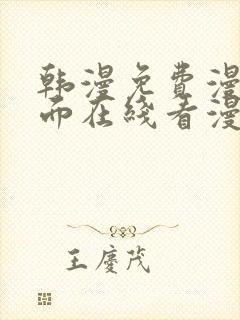 韩漫免费漫
面在线看漫
王庆茂